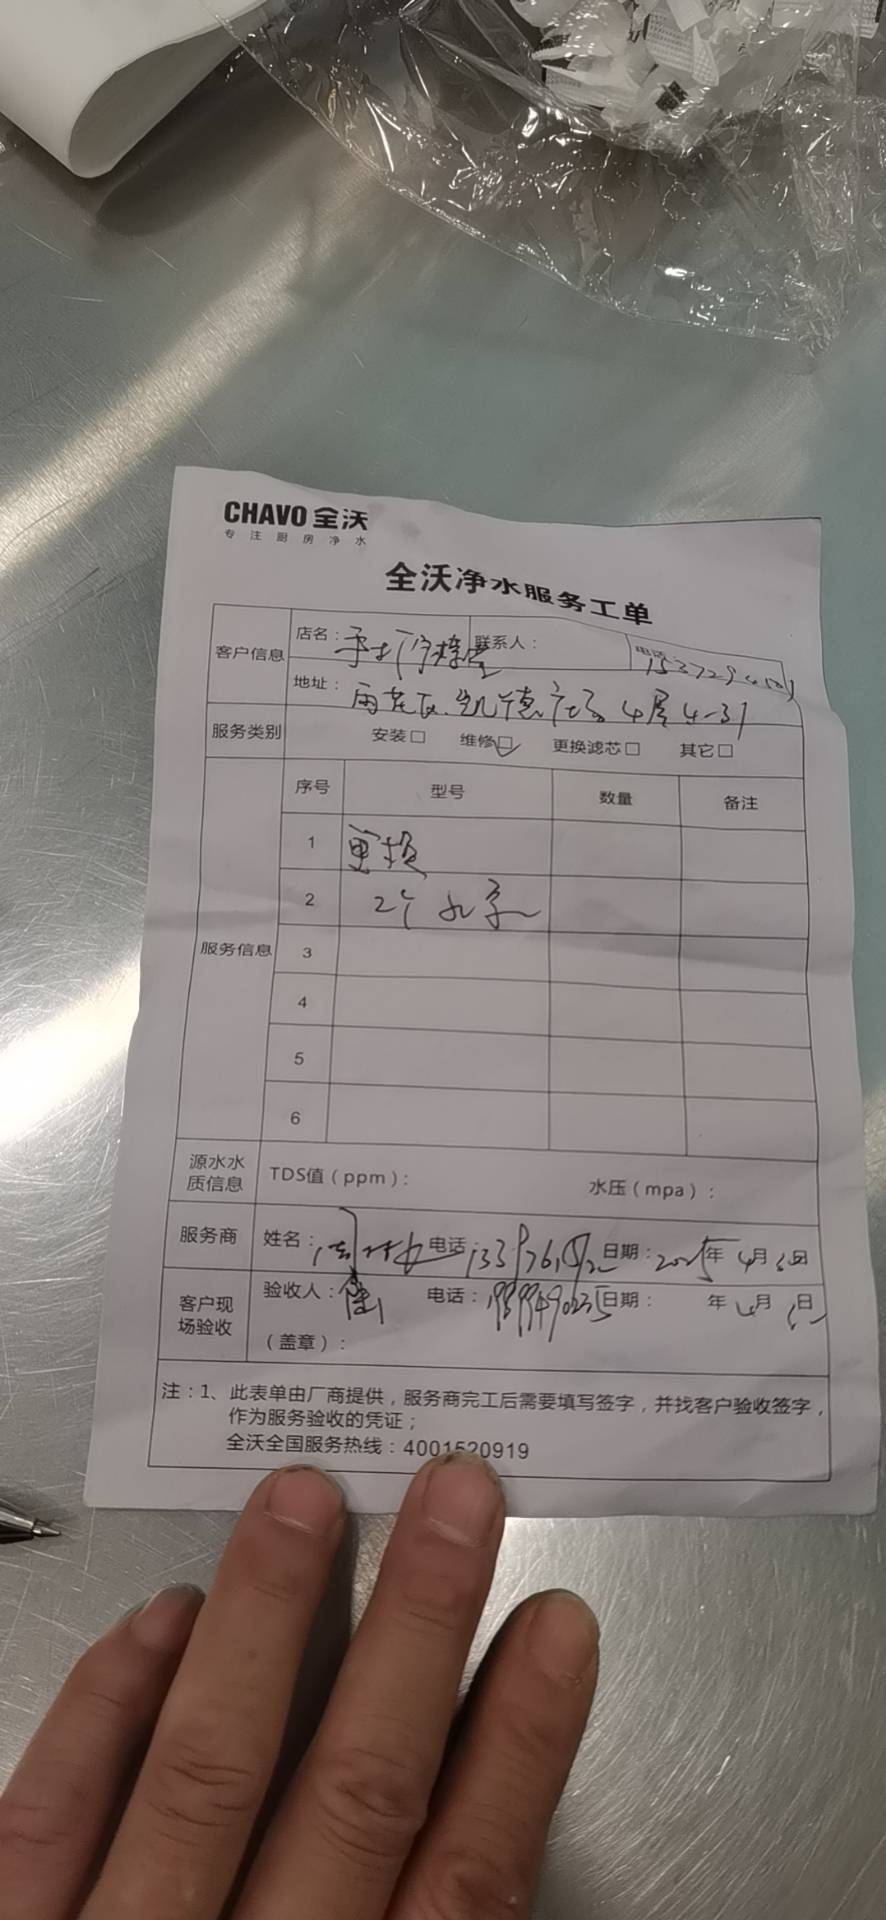 CHAVO 全沃
专注厨房净水
全沃净水服务工单
客户信息
店名：
联系人：
电话：
地址：雨花区凯德广场4层4-31
服务类别
安装□ 维修□ 更换滤芯□ 其它□
服务信息
序号 型号 数量 备注
1 更换
2 2个水
3
4
5
6
源水水质信息
TDS值（ppm）： 水压（mpa）：
服务商 姓名： 电话： 日期：2025年4月6日
客户现场验收
验收人： 电话： 日期： 年4月 日
（盖章）：
注：1、此表单由厂商提供，服务商完工后需要填写签字，并找客户验收签字，
作为服务验收的凭证；
全沃全国服务热线：4001520919